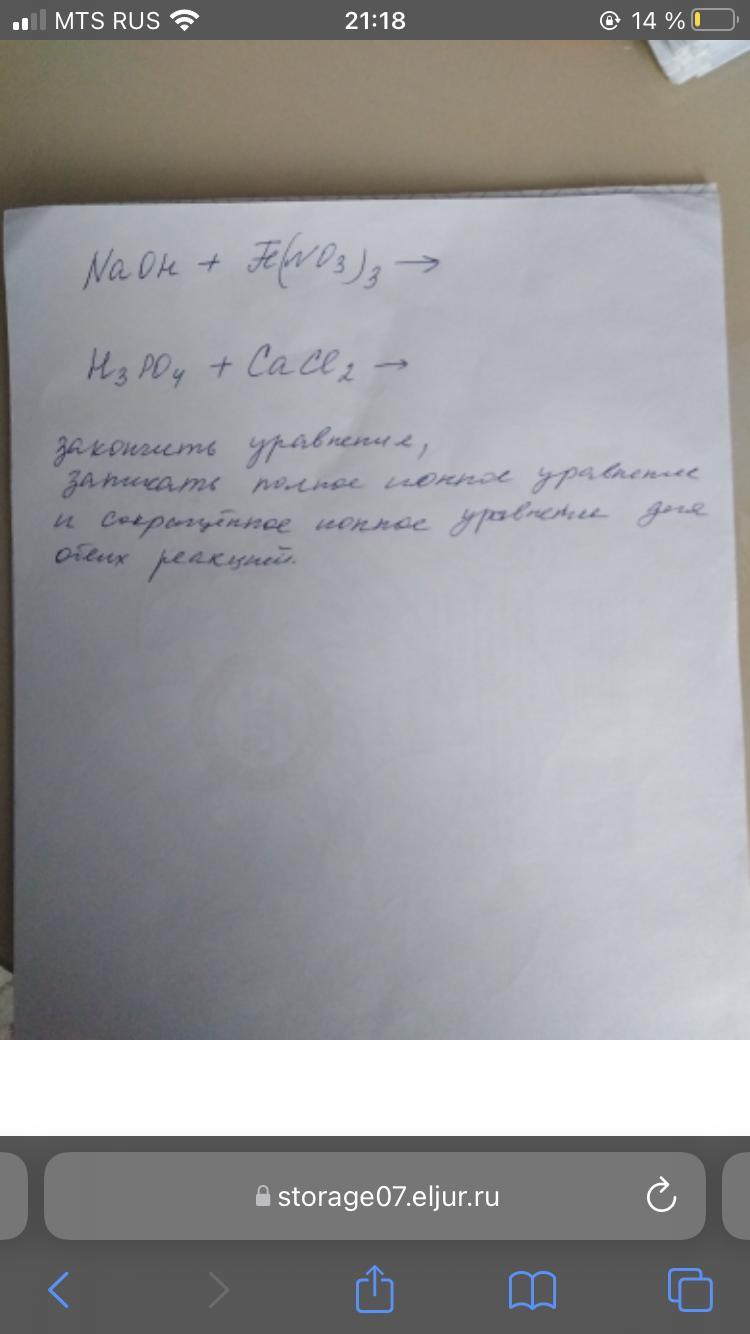 MTS RUS 21:18 14 %
NaOH + Fe(NO3)3 →
H3PO4 + CaCl2 →
закончить уравнения,
записать полное ионное уравнение
и сокращённое ионное уравнение для
обеих реакций.
storage07.eljur.ru